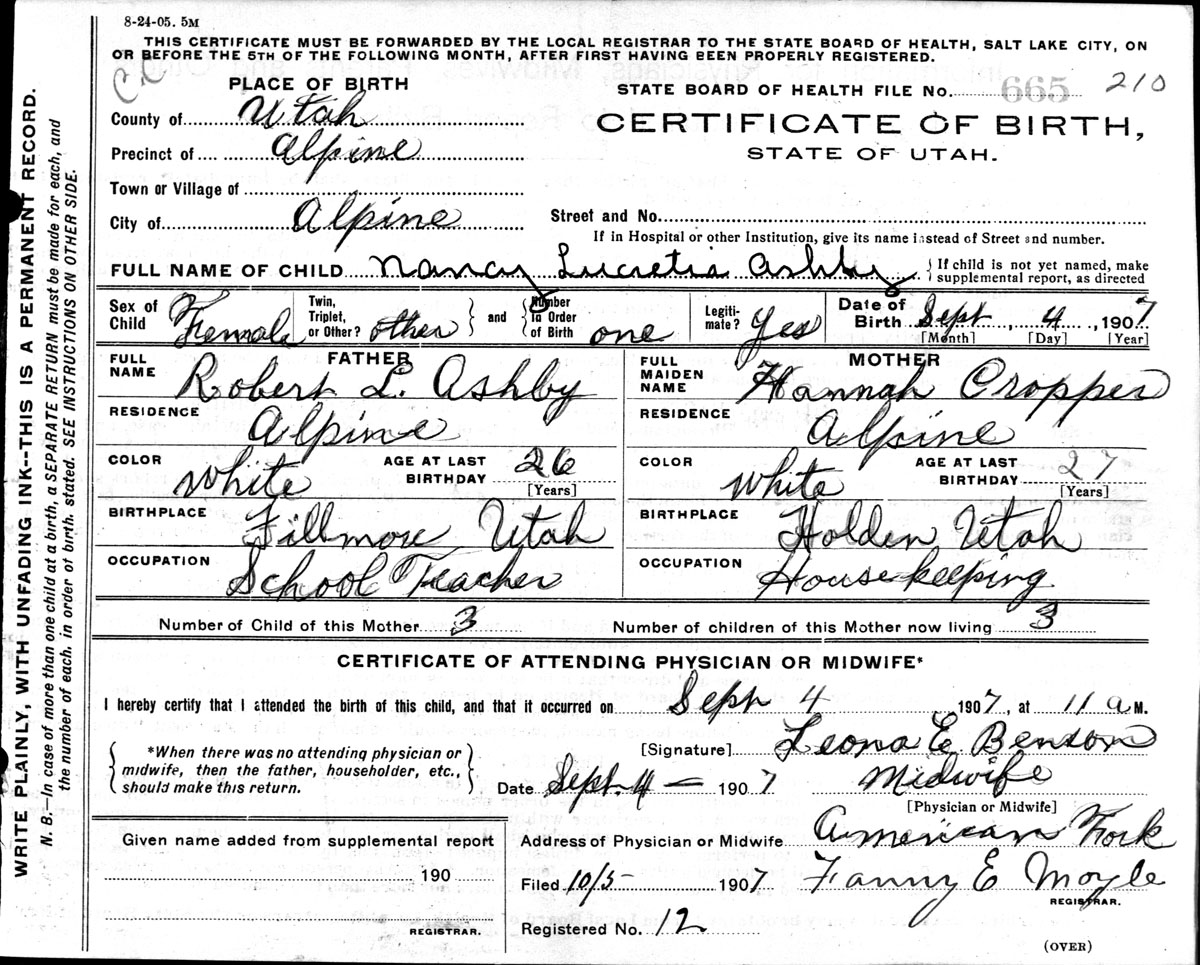 8-24-05. 5M
THIS CERTIFICATE MUST BE FORWARDED BY THE LOCAL REGISTRAR TO THE STATE BOARD OF HEALTH, SALT LAKE CITY, ON
OR BEFORE THE 5TH OF THE FOLLOWING MONTH, AFTER FIRST HAVING BEEN PROPERLY REGISTERED.
WRITE PLAINLY, WITH UNFADING INK--THIS IS A PERMANENT RECORD.
N. B.—In case of more than one child at a birth, a SEPARATE RETURN must be made for each, and
the number of each, in order of birth, stated. SEE INSTRUCTIONS ON OTHER SIDE.
PLACE OF BIRTH
County of Utah
Precinct of Alpine
Town or Village of
City of Alpine
STATE BOARD OF HEALTH FILE No. 665 210
CERTIFICATE OF BIRTH,
STATE OF UTAH.
Street and No.
If in Hospital or other Institution, give its name instead of Street and number.
FULL NAME OF CHILD Nancy Lucretia Ashby { If child is not yet named, make
supplemental report, as directed
Sex of Child Female
Twin, Triplet, or Other? other } and { Number in Order of Birth one
Legitimate? Yes
Date of Birth Sept, 4, 1907
[Month] [Day] [Year]
FATHER
FULL NAME Robert L. Ashby
RESIDENCE Alpine
COLOR White AGE AT LAST BIRTHDAY 26
[Years]
BIRTHPLACE Fillmore Utah
OCCUPATION School Teacher
MOTHER
FULL MAIDEN NAME Hannah Cropper
RESIDENCE Alpine
COLOR White AGE AT LAST BIRTHDAY 27
[Years]
BIRTHPLACE Holden Utah
OCCUPATION Housekeeping
Number of Child of this Mother 3 Number of children of this Mother now living 3
CERTIFICATE OF ATTENDING PHYSICIAN OR MIDWIFE*
I hereby certify that I attended the birth of this child, and that it occurred on Sept 4 1907, at 11 a M.
{ *When there was no attending physician or
midwife, then the father, householder, etc.,
should make this return. }
[Signature] Leona E. Benson
Date Sept. 4 — 1907 Midwife
[Physician or Midwife]
Given name added from supplemental report
190
REGISTRAR.
Address of Physician or Midwife American Fork
Filed 10/5- 1907 Fanny E Moyle
REGISTRAR.
Registered No. 12
(OVER)